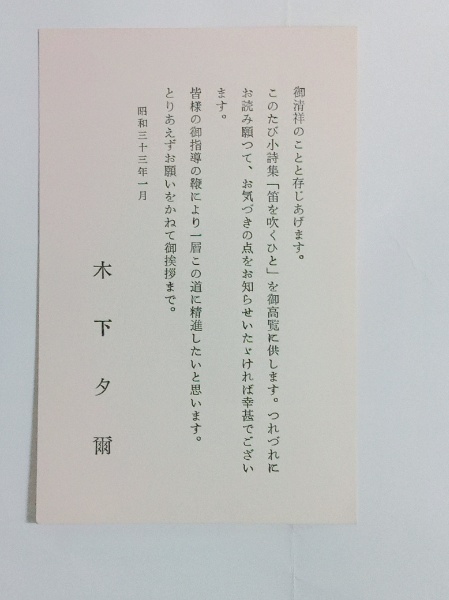 御清祥のことと存じあげます。
このたび小詩集「笛を吹くひと」を御高覧に供します。つれづれに
お読み願つて、お気づきの点をお知らせいたゞければ幸甚でござい
ます。
皆様の御指導の鞭により一層この道に精進したいと思います。
とりあえずお願いをかねて御挨拶まで。
昭和三十三年一月
木下夕爾